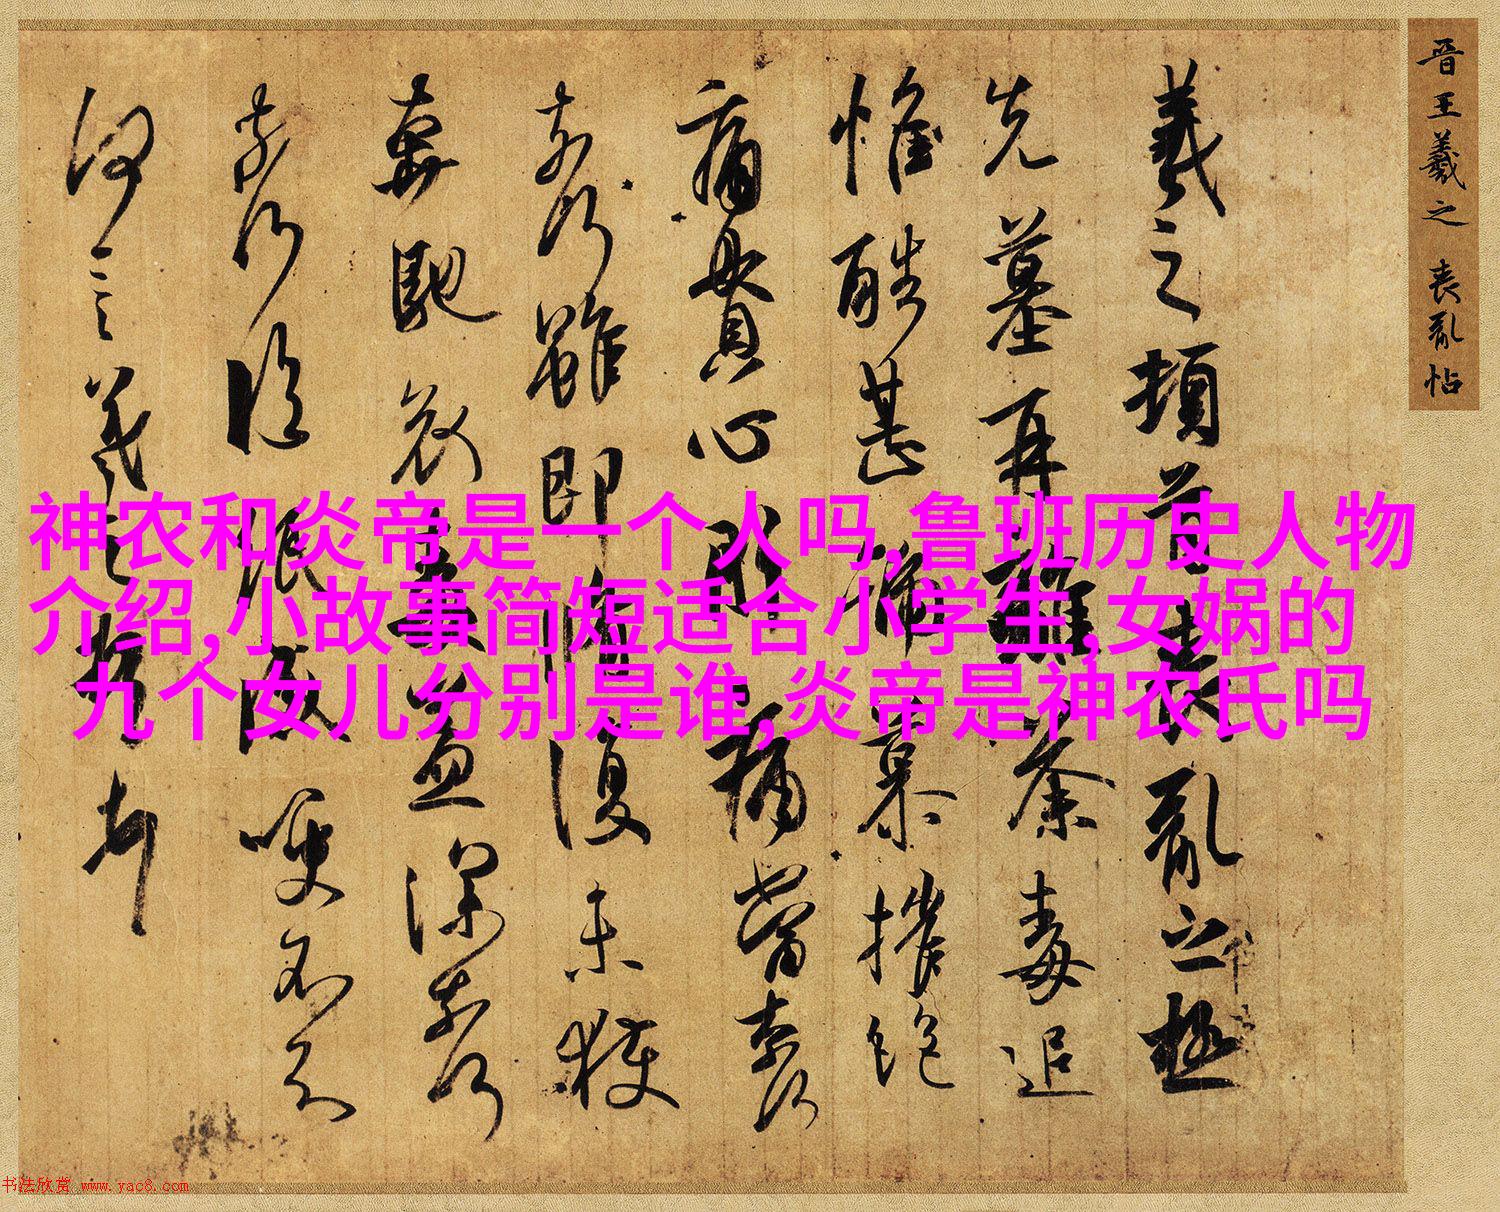 晋王羲之 丧乱帖
羲之頓首喪亂之極
先墓再離荼毒追
惟酷甚號慕摧絕
痛貫心肝痛當奈何
奈何雖即脩復未獲
奔馳哀毒益深奈何
奈何臨紙感哽不知
何言羲之頓首頓首
神农和炎帝是一个人吗,鲁班历史人物
介绍,小故事简短适合小学生,女娲的
九个女儿分别是谁,炎帝是神农氏吗
书法欣赏 www.yac8.com